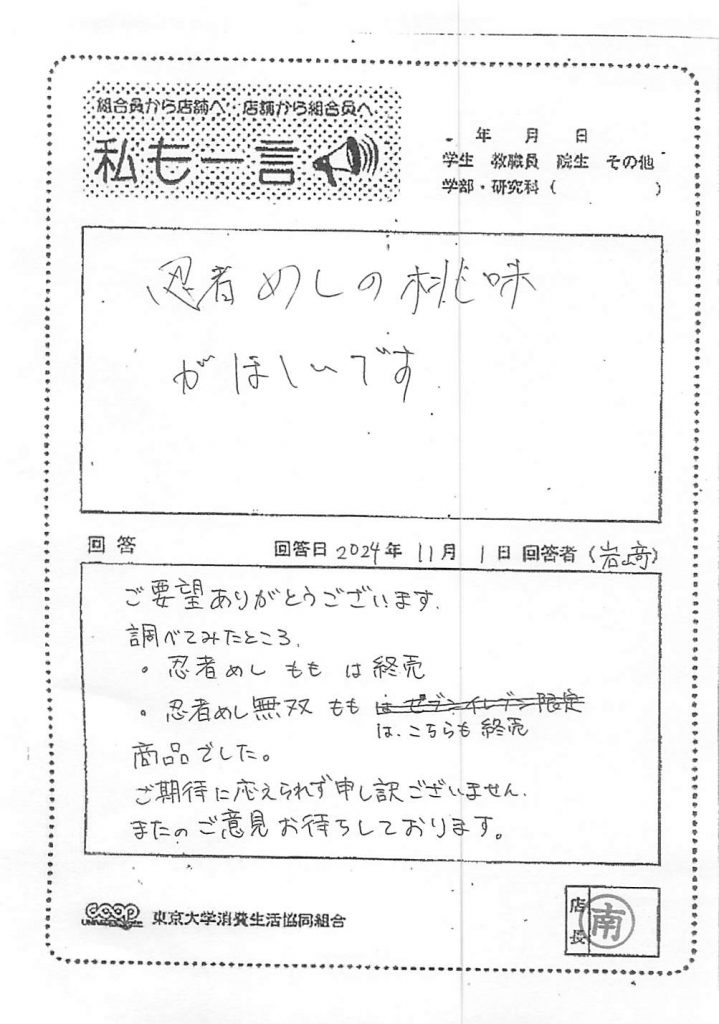 組合員から店舗へ 店舗から組合員へ
私も一言
年 月 日
学生 教職員 院生 その他
学部・研究科（ ）
忍者めしの桃味
がほしいです
回答 回答日 2024年 11月 1日 回答者（岩﨑）
ご要望ありがとうございます.
調べてみたところ,
・忍者めし もも は 終売
・忍者めし無双 もも は セブンイレブン限定
は、こちらも 終売
商品でした。
ご期待に応えられず申し訳ございません.
またのご意見お待ちしております。
coop 東京大学消費生活協同組合
店長 南